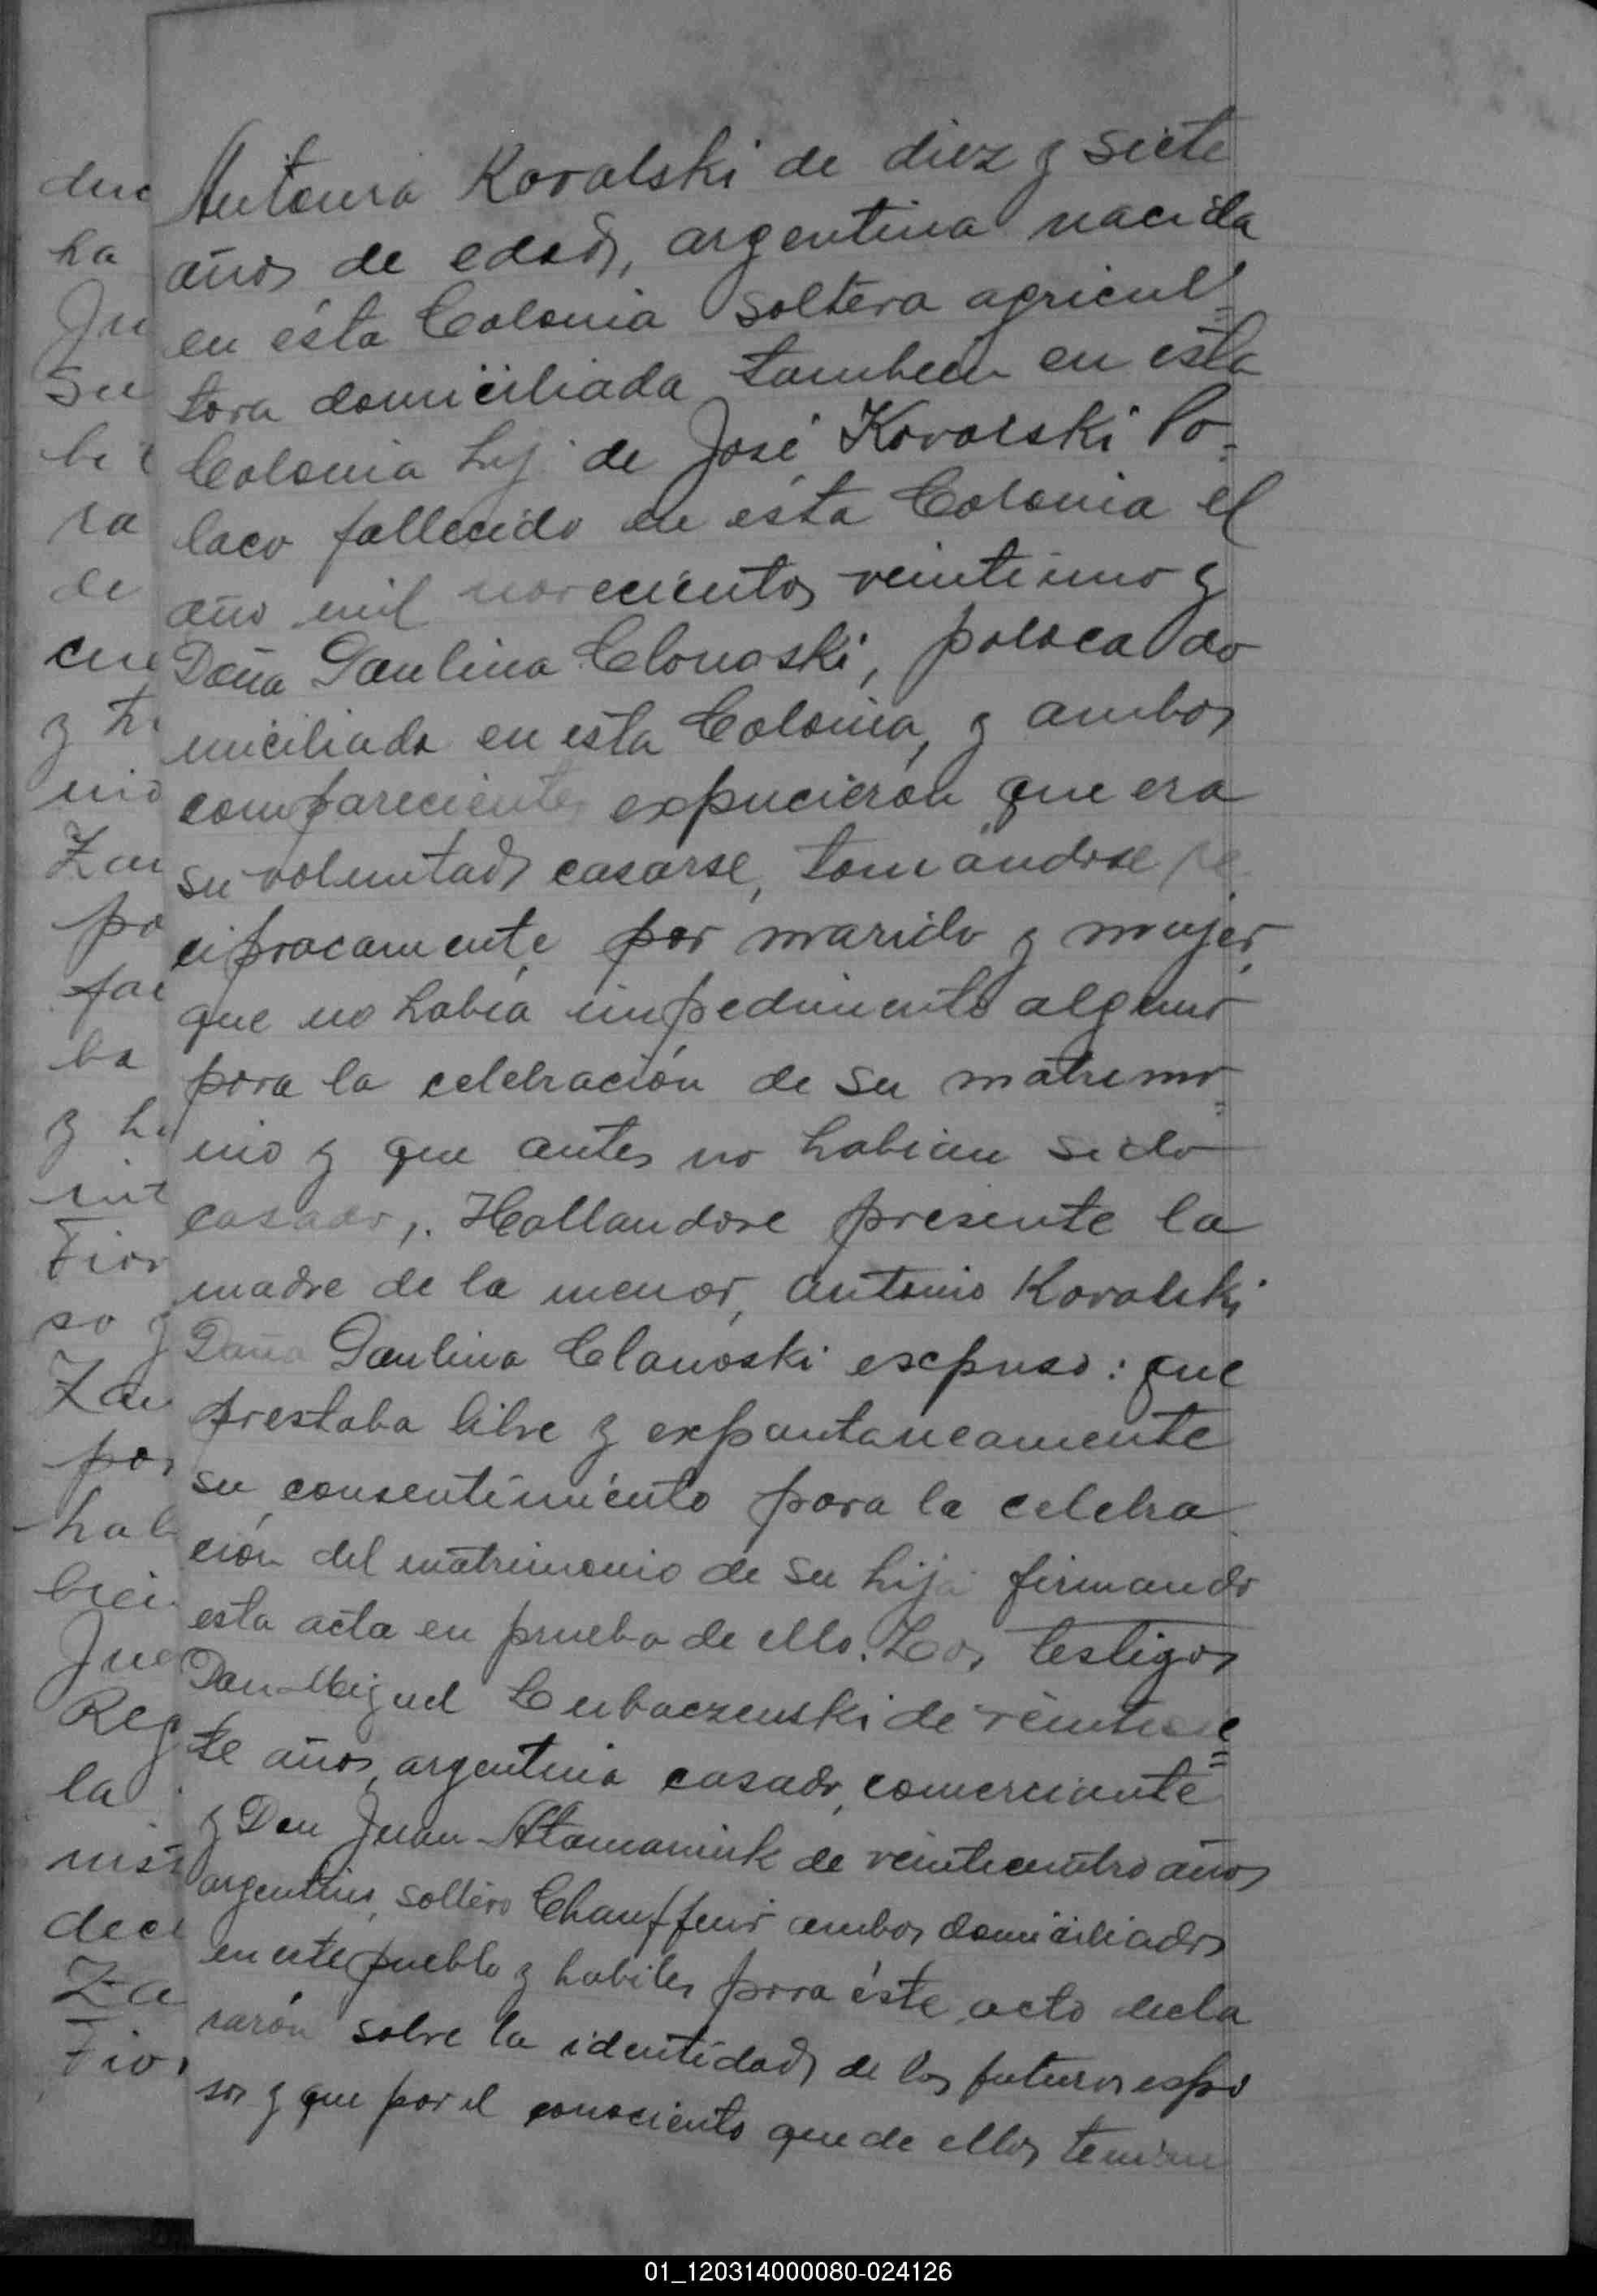 Antonia Kovalski de diez y siete
años de edad, argentina nacida
en ésta Colonia soltera agricul=
tora domiciliada tambien en ésta
Colonia hij de José Kovalski Po=
laco fallecido en ésta Colonia el
año mil novecientos veintiuno y
Doña Paulina Clonoski, polaca do
miciliada en esta Colonia, y ambos
comparecientes expucieron que era
su voluntad casarse, tomándose re
ciprocamente por marido y mujer,
que no habia impedimento alguno
para la celebración de su matrimo=
nio y que antes no habian sido
casado,. Hallandose presente la
madre de la menor, Antonia Kovalski
Doña Paulina Clanoski expuso: que
prestaba libre y expontaneamente
su consentimiento para la celebra
ción del matrimonio de su hija firmando
esta acta en prueba de ello. Los testigos
Don Miguel Cubaczenski de veintisie=
te años, argentino casado, comerciante
y Don Juan Atamaniuk de veinticuatro años
argentino, soltero Chauffeur ambos domiciliados
en este pueblo y habiles para éste acto decla
rarón sobre la identidad de los futuros espo
sos y que por el conociento que de ellos tenian
due
ha
Ju
Su
bi
ra
de
cue
y
nio
Zar
po
fac
ba
y
Fior
so y
Zar
por
hab
bien
Jue
Reg
la
dec
Za
Fior
01_120314000080-024126